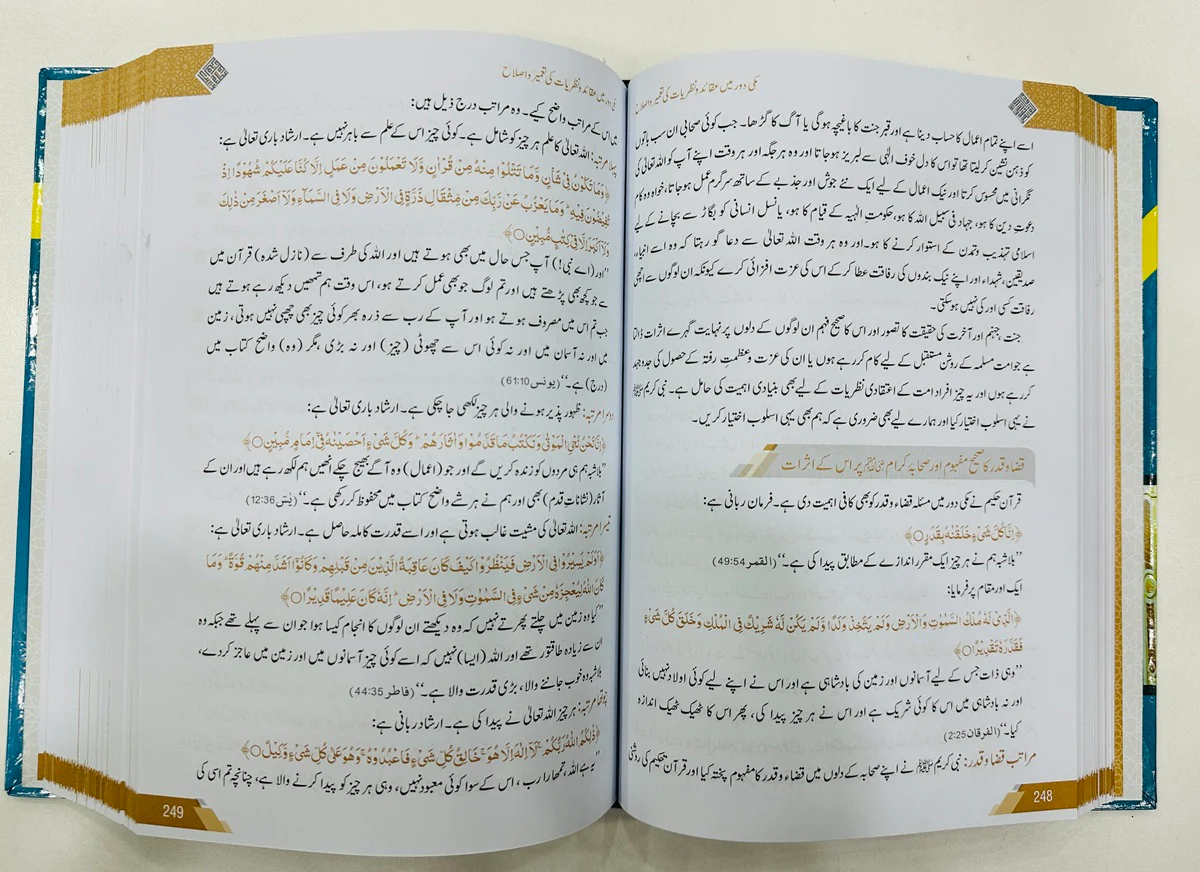 مکی دور میں عقائد و نظریات کی تعمیر و اصلاح
اسے اپنے تمام اعمال کا حساب دینا ہے اور قبر جنت کا باغیچہ ہوگی یا آگ کا گڑھا۔ جب کوئی صحابی ان سب باتوں
کو ذہن نشین کر لیتا تھا تو اس کا دل خوف الٰہی سے لبریز ہو جاتا اور وہ ہر جگہ اور ہر وقت اپنے آپ کو اللہ تعالیٰ کی
نگرانی میں محسوس کرتا اور نیک اعمال کے لیے ایک نئے جوش اور جذبے کے ساتھ سرگرم عمل ہو جاتا، خواہ وہ کام
دعوتِ دین کا ہو، جہاد فی سبیل اللہ کا ہو، حکومت الٰہیہ کے قیام کا ہو، یا نسل انسانی کو بگاڑ سے بچانے کے لیے
اسلامی تہذیب و تمدن کے استوار کرنے کا ہو۔ اور وہ ہر وقت اللہ تعالیٰ سے دعا گو رہتا کہ وہ اسے انبیاء،
صدیقین، شہداء اور اپنے نیک بندوں کی رفاقت عطا کر کے اس کی عزت افزائی کرے کیونکہ ان لوگوں سے اچھی
رفاقت کسی اور کی نہیں ہو سکتی۔
جنت، جہنم اور آخرت کی حقیقت کا تصور اور اس کا صحیح فہم ان لوگوں کے دلوں پر نہایت گہرے اثرات ڈالتا
ہے جو امت مسلمہ کے روشن مستقبل کے لیے کام کر رہے ہوں یا ان کی عزت و عظمتِ رفتہ کے حصول کی جدوجہد
کر رہے ہوں اور یہ چیز افراد امت کے اعتقادی نظریات کے لیے بھی بنیادی اہمیت کی حامل ہے۔ نبی کریم ﷺ
نے یہی اسلوب اختیار کیا اور ہمارے لیے بھی ضروری ہے کہ ہم بھی یہی اسلوب اختیار کریں۔
قضا و قدر کا صحیح مفہوم اور صحابۂ کرام رضی اللہ عنہم پر اس کے اثرات
قرآن حکیم نے مکی دور میں مسئلہ قضاء و قدر کو بھی کافی اہمیت دی ہے۔ فرمان ربانی ہے:
﴿اِنَّا كُلَّ شَيْءٍ خَلَقْنٰهُ بِقَدَرٍ﴾
”بلاشبہ ہم نے ہر چیز ایک مقرر اندازے کے مطابق پیدا کی ہے۔“ (القمر 49:54)
ایک اور مقام پر فرمایا:
﴿الَّذِيْ لَهٗ مُلْكُ السَّمٰوٰتِ وَالْاَرْضِ وَلَمْ يَتَّخِذْ وَلَدًا وَّلَمْ يَكُنْ لَّهٗ شَرِيْكٌ فِي الْمُلْكِ وَخَلَقَ كُلَّ شَيْءٍ
فَقَدَّرَهٗ تَقْدِيْرًا﴾
”وہی ذات جس کے لیے آسمانوں اور زمین کی بادشاہی ہے اور اس نے اپنے لیے کوئی اولاد نہیں بنائی
اور نہ بادشاہی میں اس کا کوئی شریک ہے اور اس نے ہر چیز پیدا کی، پھر اس کا ٹھیک ٹھیک اندازہ
کیا۔“ (الفرقان 2:25)
مراتب قضا و قدر: نبی کریم ﷺ نے اپنے صحابہ کے دلوں میں قضاء و قدر کا مفہوم پختہ کیا اور قرآن حکیم کی روشنی
248
مکی دور میں عقائد و نظریات کی تعمیر و اصلاح
میں اس کے مراتب واضح کیے۔ وہ مراتب درج ذیل ہیں:
پہلا مرتبہ: اللہ تعالیٰ کا علم ہر چیز کو شامل ہے۔ کوئی چیز اس کے علم سے باہر نہیں ہے۔ ارشاد باری تعالیٰ ہے:
﴿وَمَا تَكُوْنُ فِيْ شَاْنٍ وَّمَا تَتْلُوْا مِنْهُ مِنْ قُرْاٰنٍ وَّلَا تَعْمَلُوْنَ مِنْ عَمَلٍ اِلَّا كُنَّا عَلَيْكُمْ شُهُوْدًا اِذْ
تُفِيْضُوْنَ فِيْهِ ۭ وَمَا يَعْزُبُ عَنْ رَّبِّكَ مِنْ مِّثْقَالِ ذَرَّةٍ فِي الْاَرْضِ وَلَا فِي السَّمَآءِ وَلَآ اَصْغَرَ مِنْ ذٰلِكَ
وَلَآ اَكْبَرَ اِلَّا فِيْ كِتٰبٍ مُّبِيْنٍ﴾
”اور (اے نبی!) آپ جس حال میں بھی ہوتے ہیں اور اللہ کی طرف سے (نازل شدہ) قرآن میں
سے جو کچھ بھی پڑھتے ہیں اور تم لوگ جو بھی عمل کرتے ہو، اس وقت ہم تمھیں دیکھ رہے ہوتے ہیں
جب تم اس میں مصروف ہوتے ہو اور آپ کے رب سے ذرہ بھر کوئی چیز بھی چھپی نہیں ہوتی، زمین
میں اور نہ آسمان میں اور نہ کوئی اس سے چھوٹی (چیز) اور نہ بڑی، مگر (وہ) واضح کتاب میں
(درج) ہے۔“ (یونس 61:10)
دوسرا مرتبہ: ظہور پذیر ہونے والی ہر چیز لکھی جا چکی ہے۔ ارشاد باری تعالیٰ ہے:
﴿اِنَّا نَحْنُ نُحْيِ الْمَوْتٰى وَنَكْتُبُ مَا قَدَّمُوْا وَاٰثَارَهُمْ ۭ وَكُلَّ شَيْءٍ اَحْصَيْنٰهُ فِيْٓ اِمَامٍ مُّبِيْنٍ﴾
”بلاشبہ ہم ہی مردوں کو زندہ کریں گے اور جو (اعمال) وہ آگے بھیج چکے انھیں ہم لکھ رہے ہیں اور ان کے
آثار (نشانات قدم) بھی اور ہم نے ہر شے واضح کتاب میں محفوظ کر رکھی ہے۔“ (یٰس 12:36)
تیسرا مرتبہ: اللہ تعالیٰ کی مشیت غالب ہوتی ہے اور اسے قدرت کاملہ حاصل ہے۔ ارشاد باری تعالیٰ ہے:
﴿اَوَلَمْ يَسِيْرُوْا فِي الْاَرْضِ فَيَنْظُرُوْا كَيْفَ كَانَ عَاقِبَةُ الَّذِيْنَ مِنْ قَبْلِهِمْ وَكَانُوْٓا اَشَدَّ مِنْهُمْ قُوَّةً ۭ وَمَا
كَانَ اللّٰهُ لِيُعْجِزَهٗ مِنْ شَيْءٍ فِي السَّمٰوٰتِ وَلَا فِي الْاَرْضِ ۭ اِنَّهٗ كَانَ عَلِيْمًا قَدِيْرًا﴾
”کیا وہ زمین میں چلتے پھرتے نہیں کہ وہ دیکھتے ان لوگوں کا انجام کیسا ہوا جو ان سے پہلے تھے جبکہ وہ
ان سے زیادہ طاقتور تھے اور اللہ (ایسا) نہیں کہ اسے کوئی چیز آسمانوں میں اور زمین میں عاجز کر دے،
بلاشبہ وہ خوب جاننے والا، بڑی قدرت والا ہے۔“ (فاطر 44:35)
چوتھا مرتبہ: ہر چیز اللہ تعالیٰ نے پیدا کی ہے۔ ارشاد ربانی ہے:
﴿ذٰلِكُمُ اللّٰهُ رَبُّكُمْ ۚ لَآ اِلٰهَ اِلَّا هُوَ ۚ خَالِقُ كُلِّ شَيْءٍ فَاعْبُدُوْهُ ۚ وَهُوَ عَلٰى كُلِّ شَيْءٍ وَّكِيْلٌ﴾
”یہ ہے اللہ، تمھارا رب، اس کے سوا کوئی معبود نہیں، وہی ہر چیز کو پیدا کرنے والا ہے، چنانچہ تم اسی کی
249